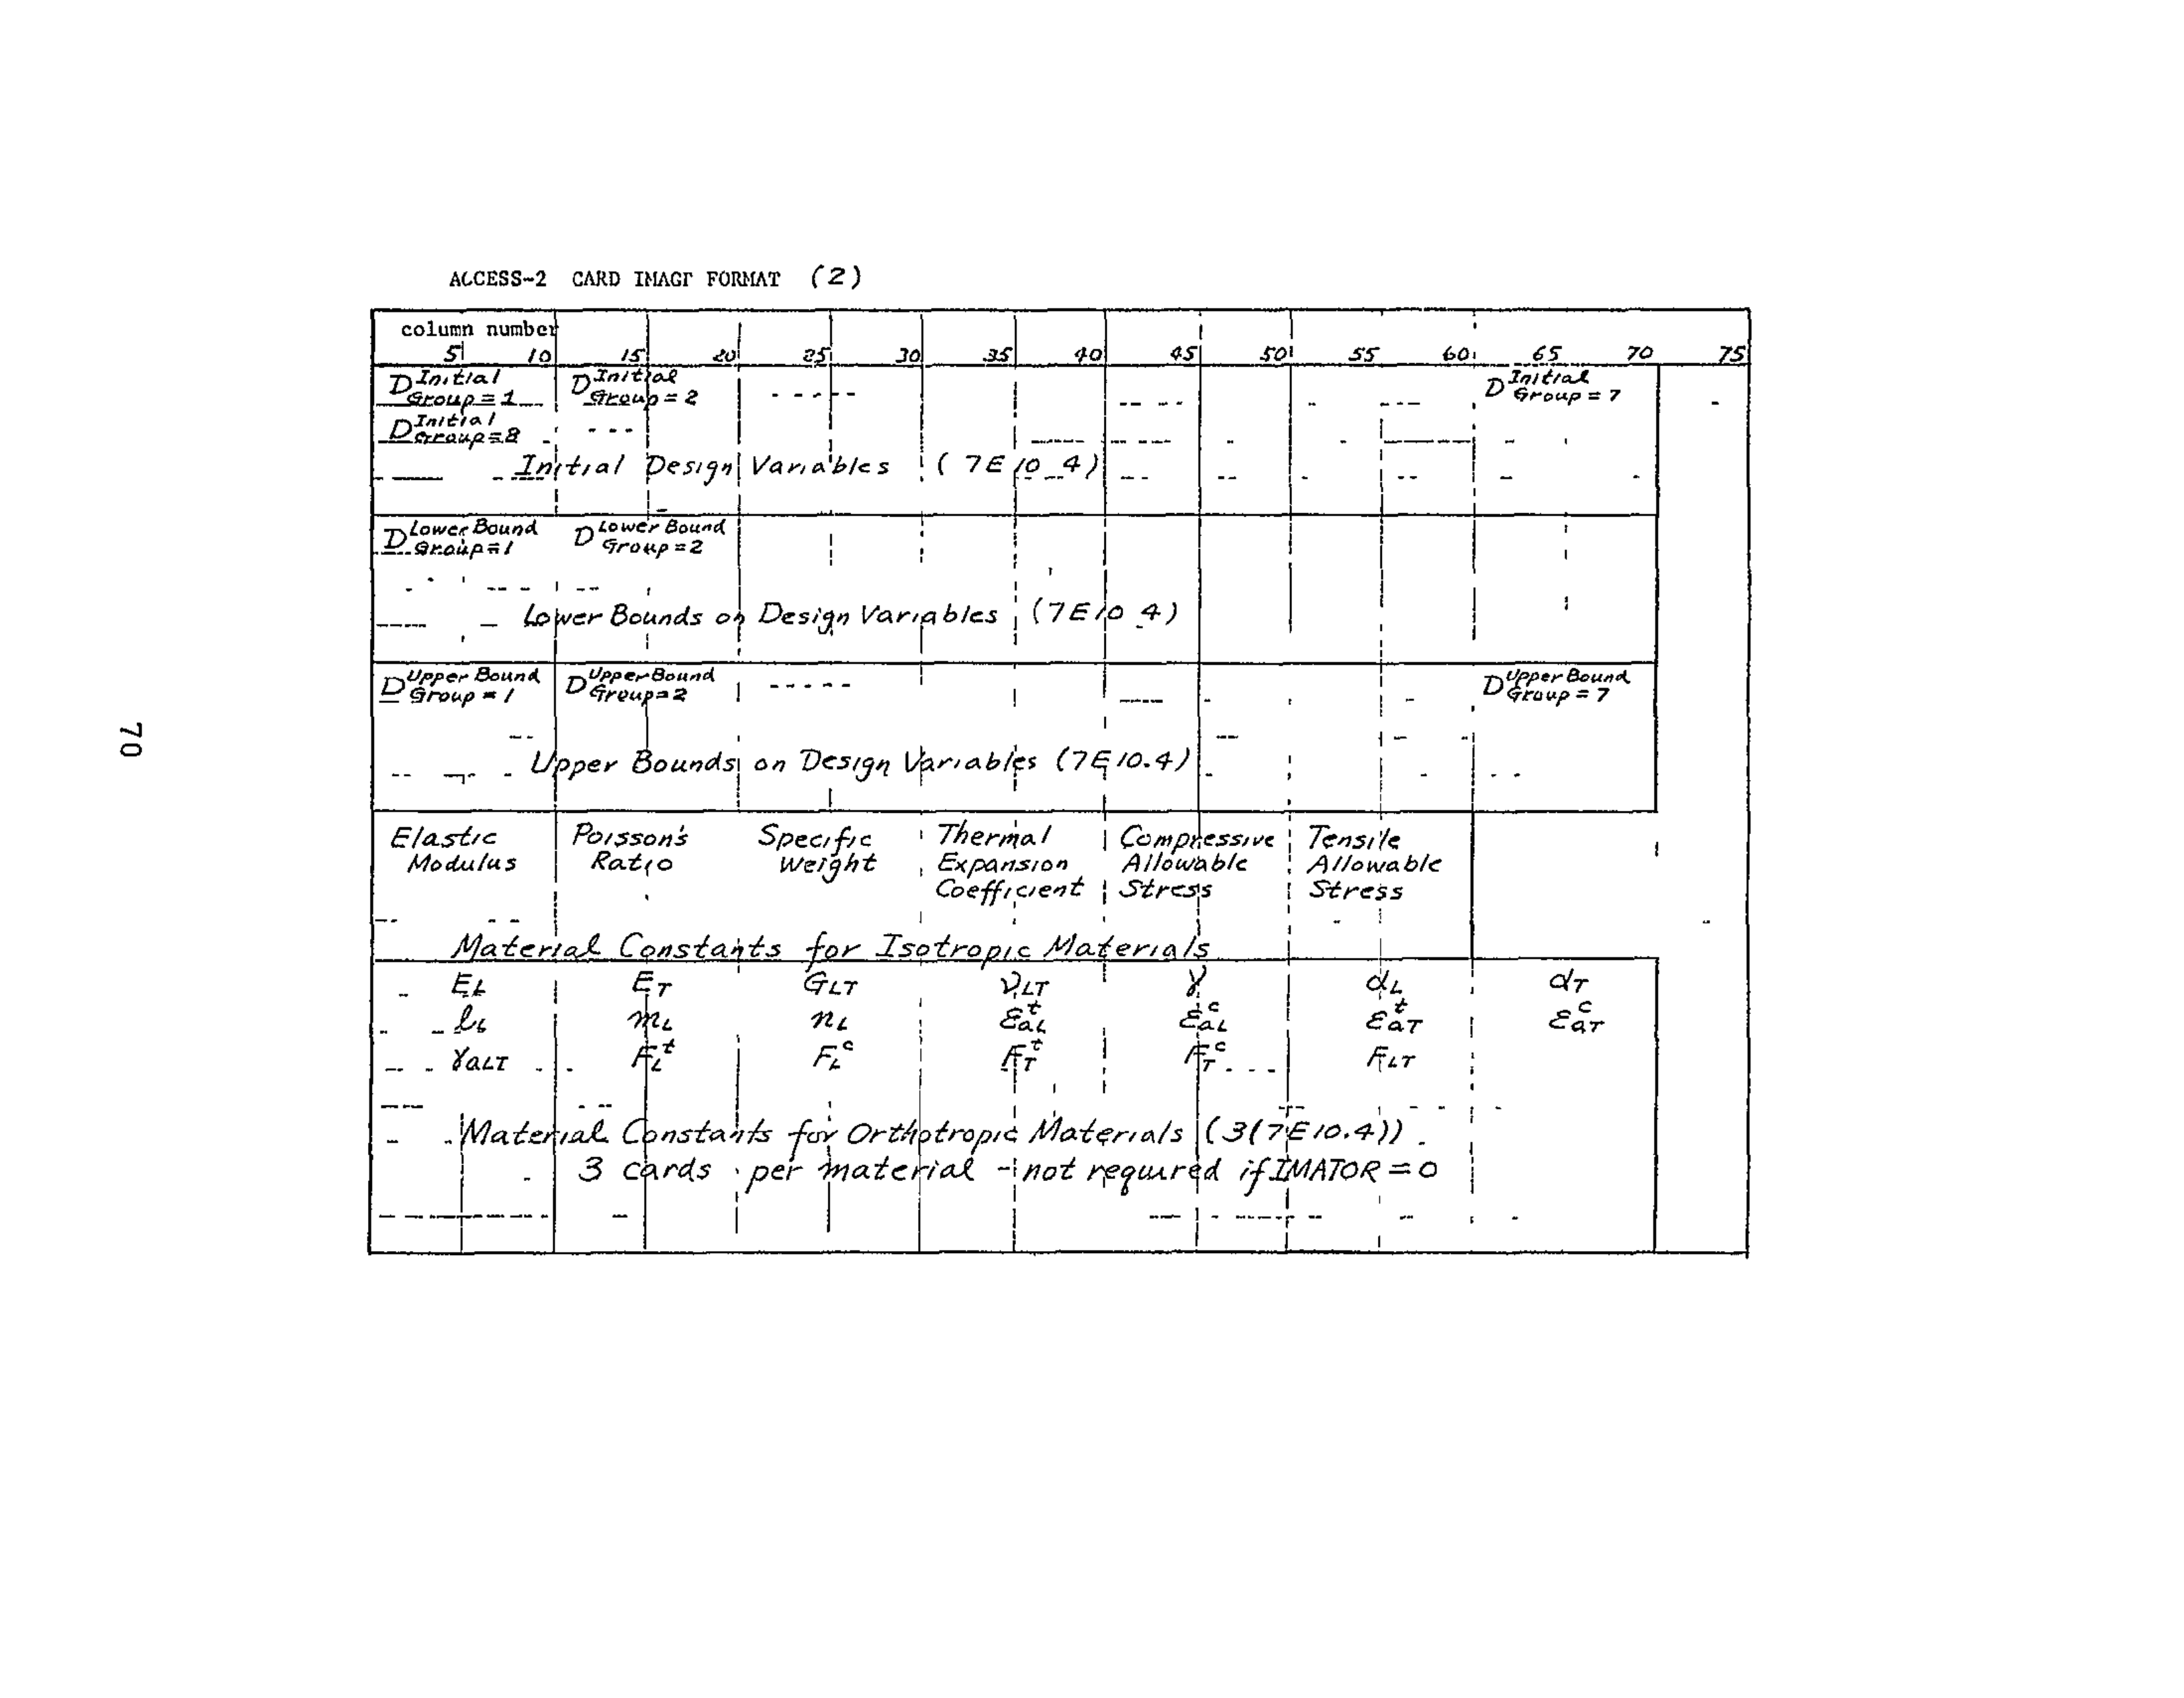 ACCESS-2 CARD IMAGE FORMAT (2)
column number
5 10 15 20 25 30 35 40 45 50 55 60 65 70 75
D Initial Group=1 D Initial Group=2 ----- D Initial Group=7
D Initial Group=8 ---
Initial Design Variables (7E10.4)
D Lower Bound Group=1 D Lower Bound Group=2
Lower Bounds on Design Variables (7E10.4)
D Upper Bound Group=1 D Upper Bound Group=2 ----- D Upper Bound Group=7
Upper Bounds on Design Variables (7E10.4)
Elastic Poisson's Specific Thermal Compressive Tensile
Modulus Ratio Weight Expansion Allowable Allowable
Coefficient Stress Stress
Material Constants for Isotropic Materials
E_L E_T G_LT ν_LT γ α_L α_T
l_L m_L n_L ε_aL^t ε_aL^c ε_aT^t ε_aT^c
γ_aLT F_L^t F_L^c F_T^t F_T^c F_LT
Material Constants for Orthotropic Materials (3(7E10.4))
3 cards per material - not required if IMATOR = 0
70